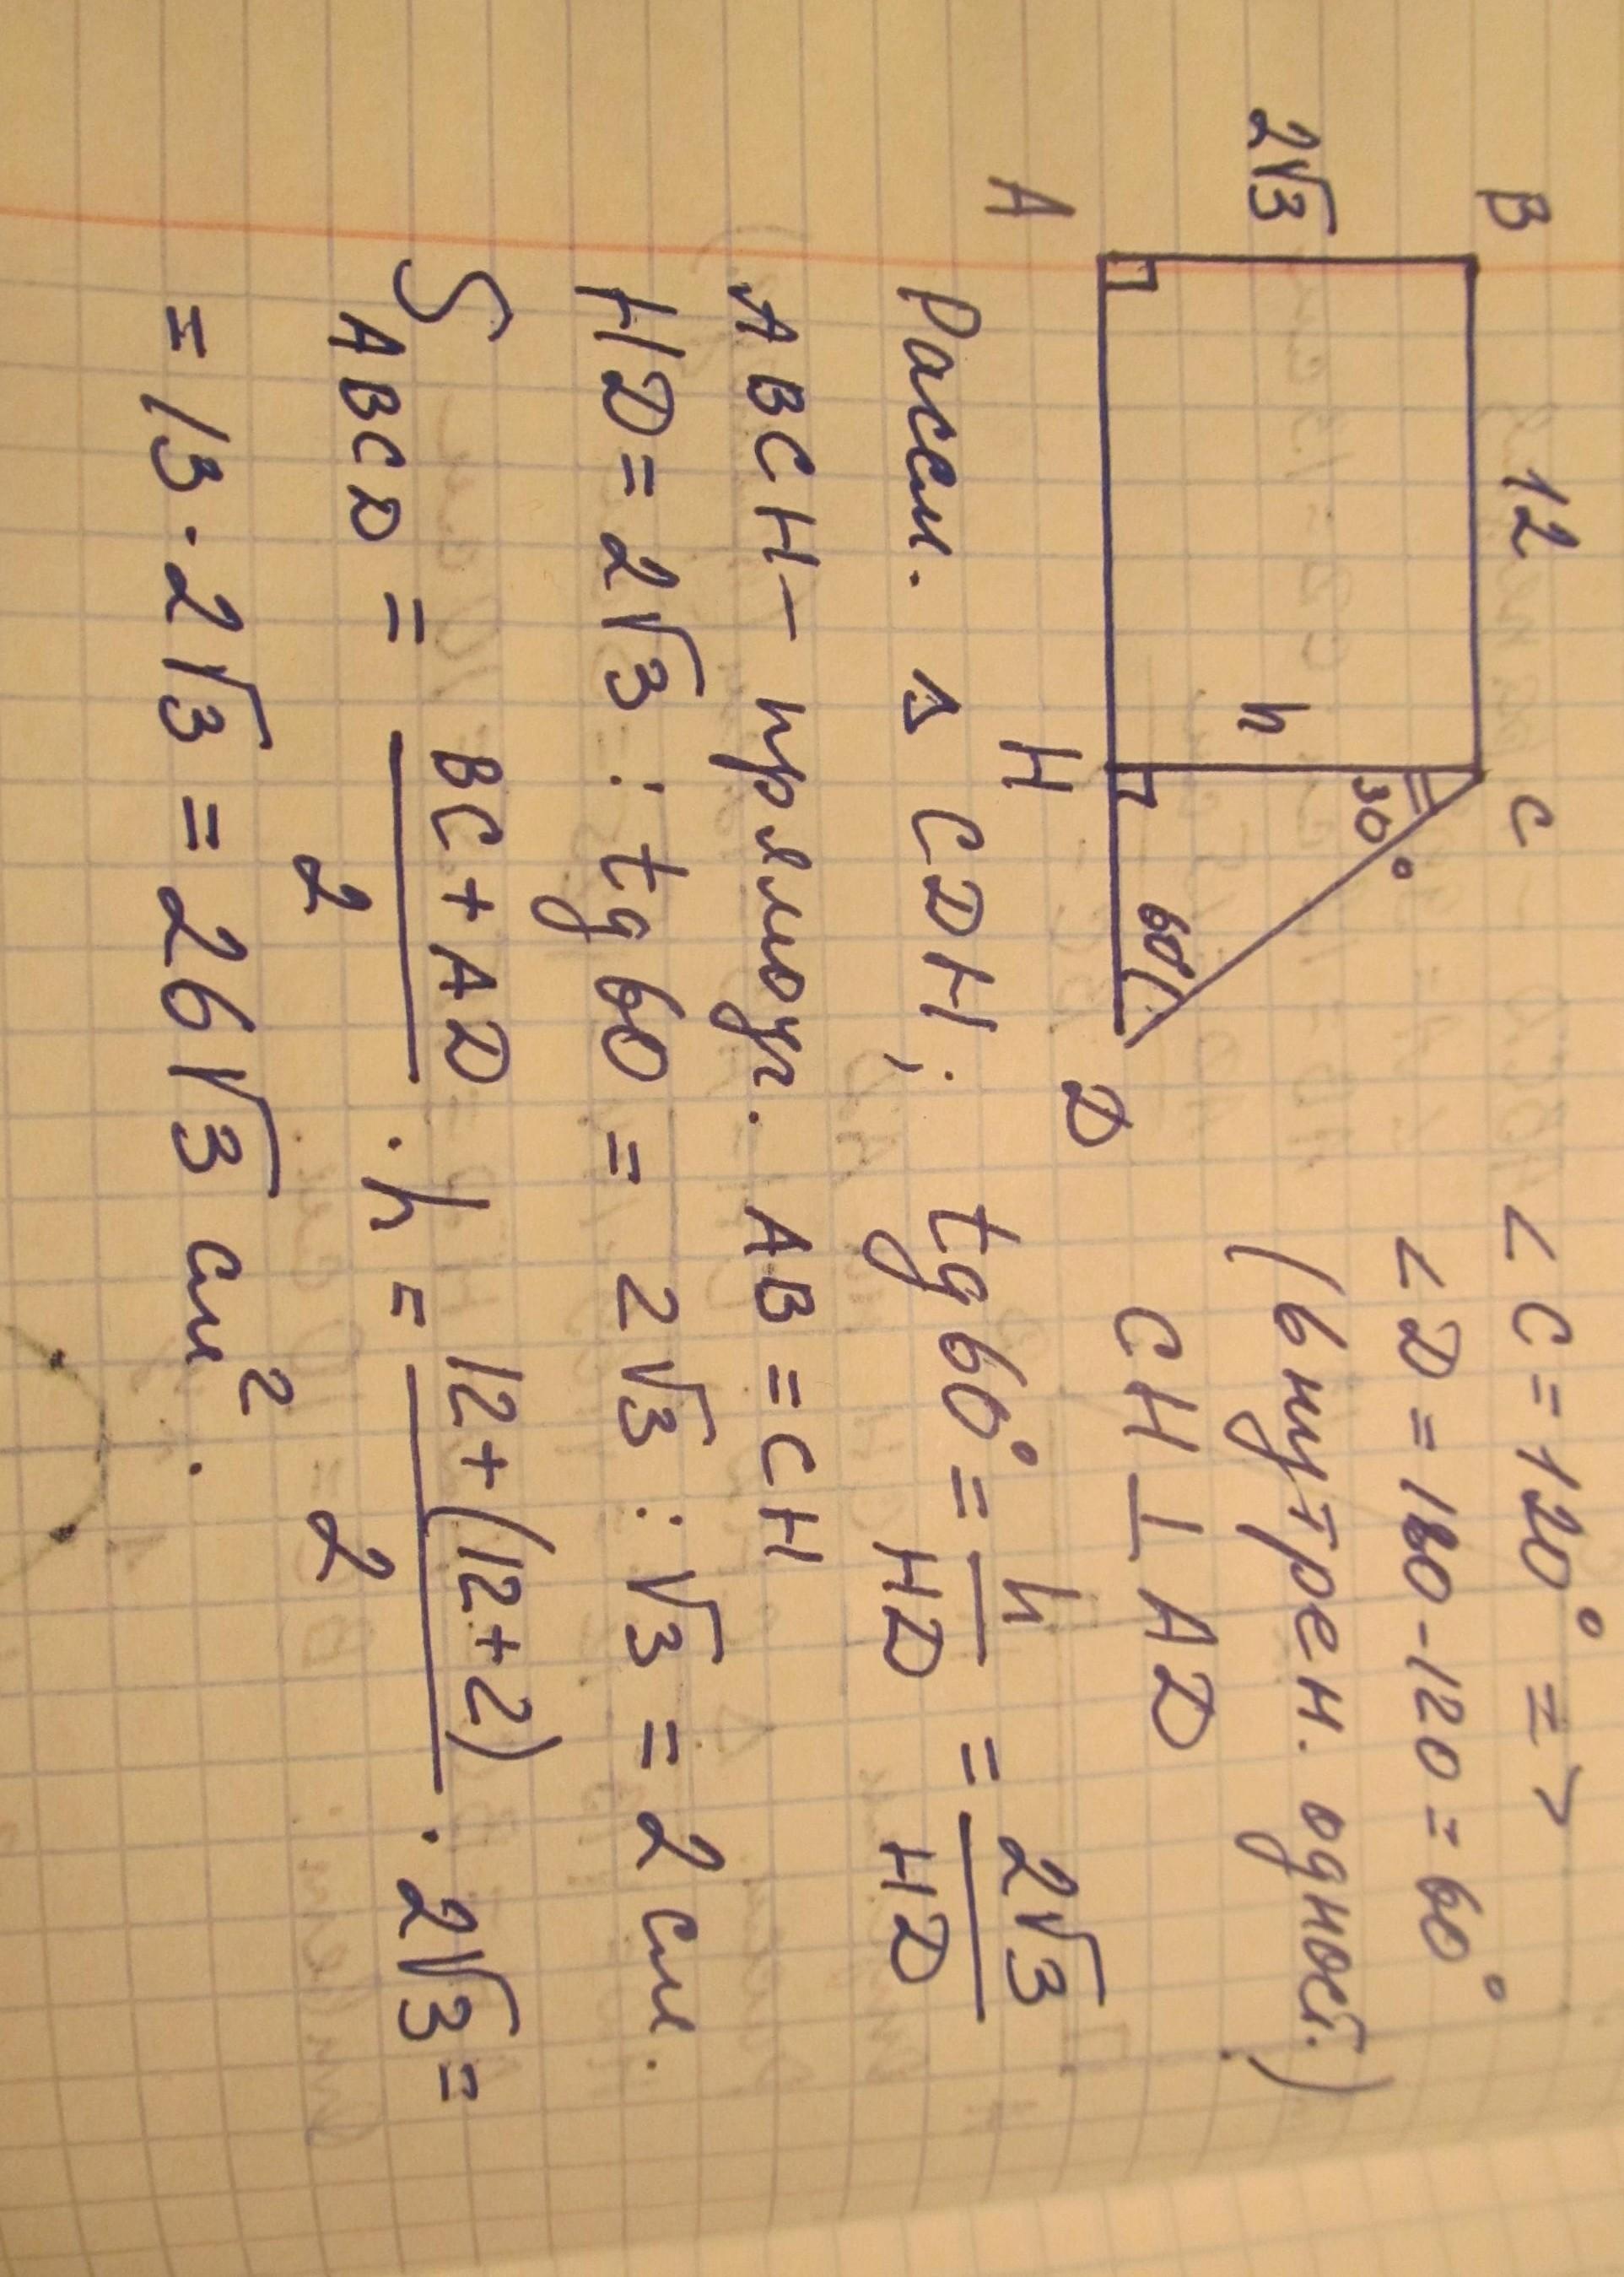 B 12 C
∠C = 120° =>
∠D = 180 - 120 = 60°
(внутрен. одност.)
2√3 h 30° 60°
CH ⊥ AD
A H D
Рассм. △ CDH; tg 60° = h/HD = 2√3/HD
ABCH - прямоуг. AB = CH
HD = 2√3 : tg 60 = 2√3 : √3 = 2 см.
S ABCD = (BC + AD)/2 · h = (12 + (12 + 2))/2 · 2√3 =
= 13 · 2√3 = 26√3 см².